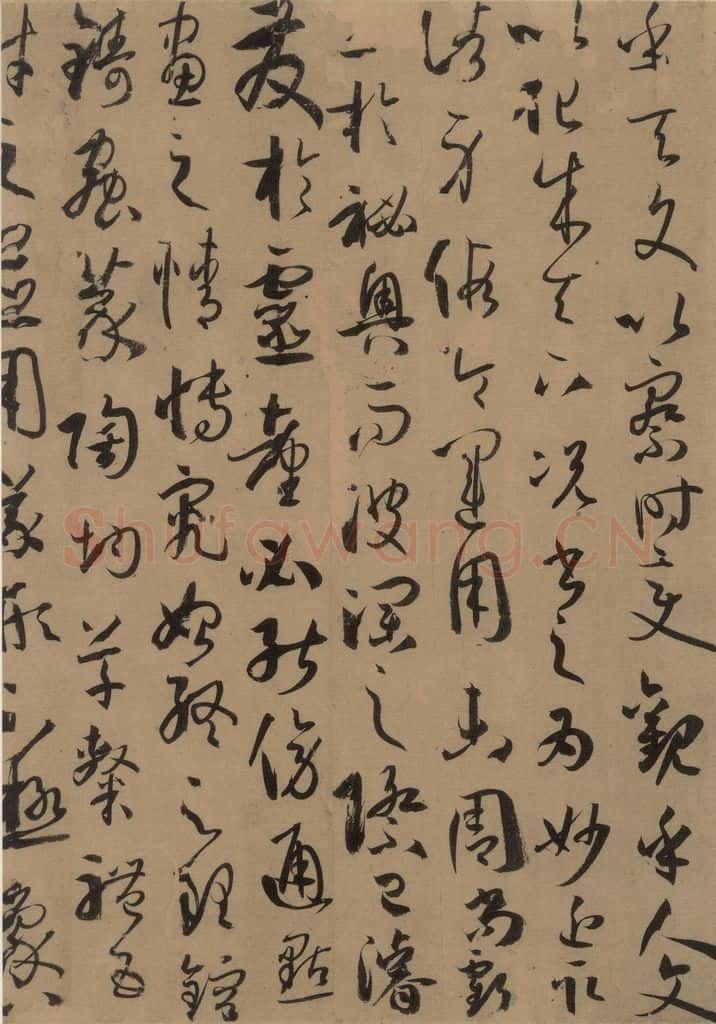 乎天文以察時變觀乎人文
以化成天下況書之為妙近取
諸身假令運用未周尚虧
工於祕奧而波瀾之際已濬
發於靈臺必能傍通點
畫之情博究始終之理鎔
鑄蟲篆陶均草隸體五
材之並用儀形不極象八
Shufawang.CN